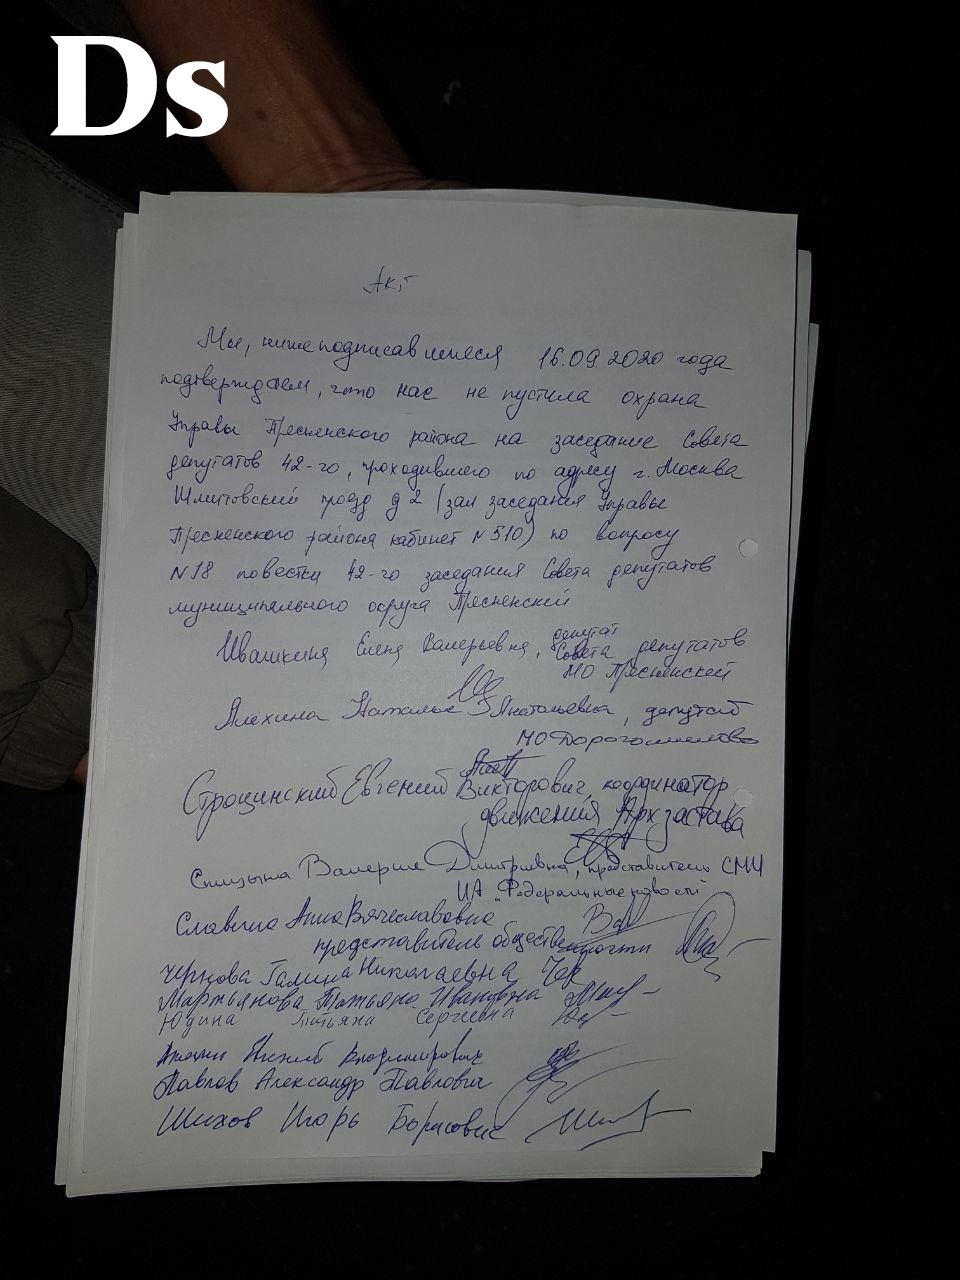 Ds
Акт
Мы, нижеподписавшиеся 16.09.2020 года
подтверждаем, что нас не пустила охрана
Управы Пресненского района на заседание Совета
депутатов 42-го, проходившего по адресу г. Москва
Шмитовский проезд д 2 (зал заседания Управы
Пресненского района кабинет № 510) по вопросу
№ 18 повестки 42-го заседания Совета депутатов
муниципального округа Пресненский
Ивашкина Елена Валерьевна, депутат Совета депутатов
МО Пресненский
Алёхина Наталья Анатольевна, депутат
МО Дорогомилово
Строцинский Евгений Викторович, координатор
движения Архзастава
Спицына Валерия Дмитриевна, представитель СМИ
ИА "Федеральные новости"
Славина Анна Вячеславовна
представитель общественности
Чернова Галина Николаевна Чер
Мартьянова Татьяна Ивановна
Юдина Татьяна Сергеевна
Владимирович
Павлов Александр Павлович
Шихов Игорь Борисович